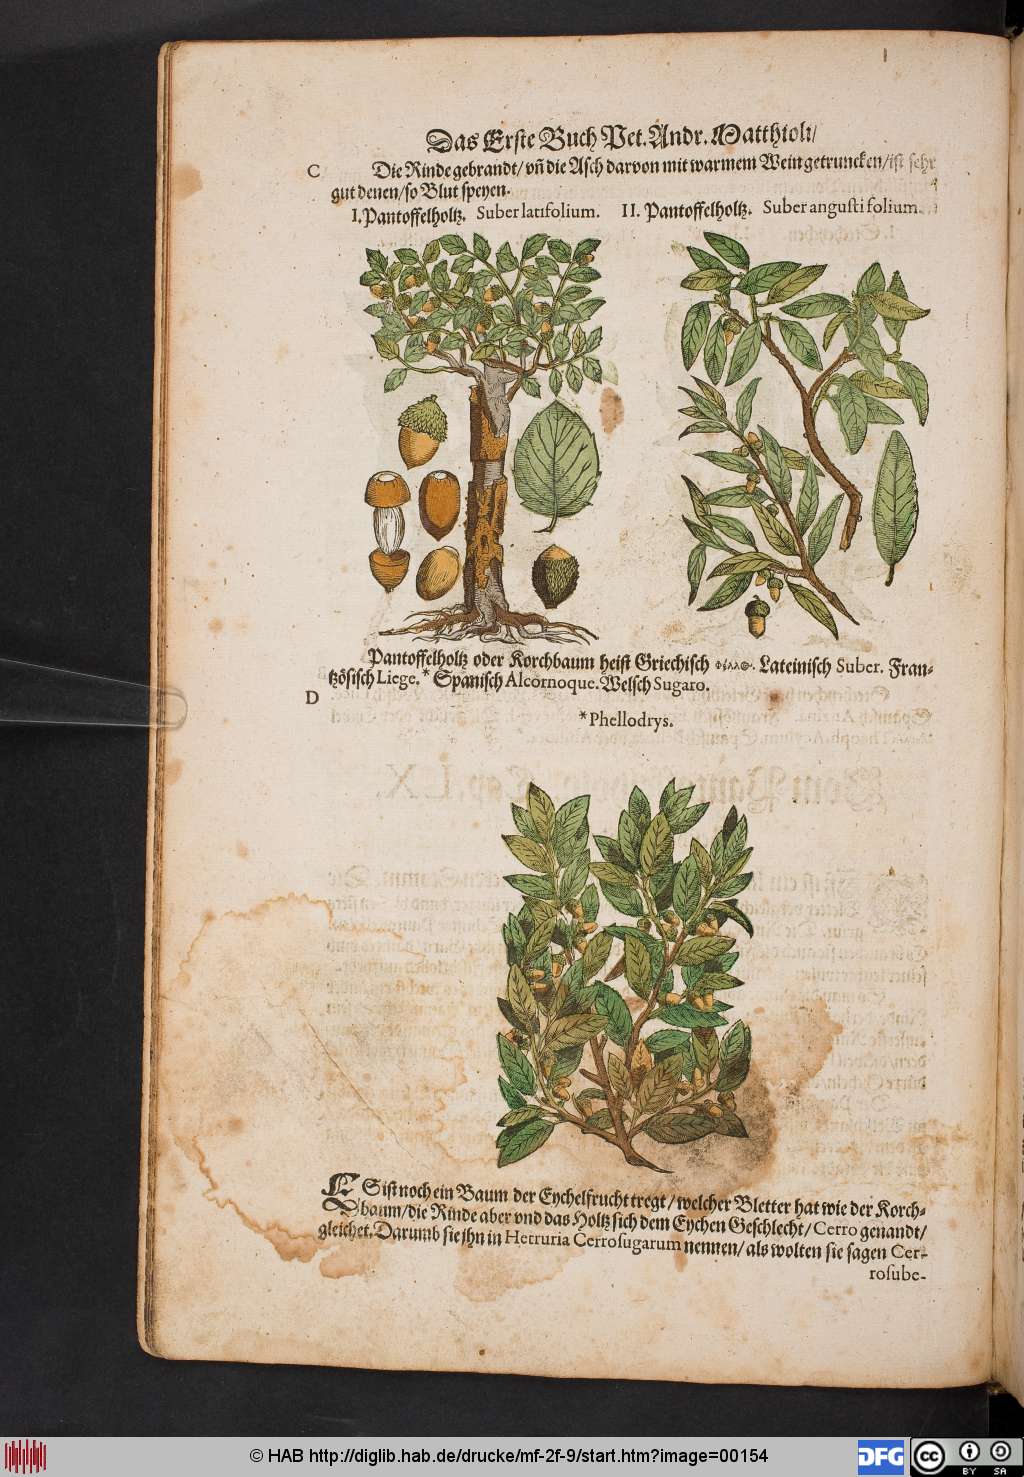 Das Erste Buch Pet. Andr. Matthioli/
C Die Rinde gebrandt/ vñ die Asch darvon mit warmem Wein getruncken/ ist sehr
gut denen/ so Blut speyen.
I. Pantoffelholtz. Suber latifolium. II. Pantoffelholtz. Suber angustifolium.
Pantoffelholtz oder Korchbaum heist Griechisch Φελλος. Lateinisch Suber. Fran-
tzösisch Liege. * Spanisch Alcornoque. Welsch Sugaro.
D
*Phellodrys.
ES ist noch ein Baum der Eychelfrucht tregt/ welcher Bletter hat wie der Korch-
baum/ die Rinde aber vnd das Holtz sich dem Eychen Geschlecht/ Cerro genandt/
gleichet. Darumb sie jhn in Hetruria Cerrosugarum nennen/ als wolten sie sagen Cer-
rosube-
© HAB http://diglib.hab.de/drucke/mf-2f-9/start.htm?image=00154
DFG
cc
BY SA